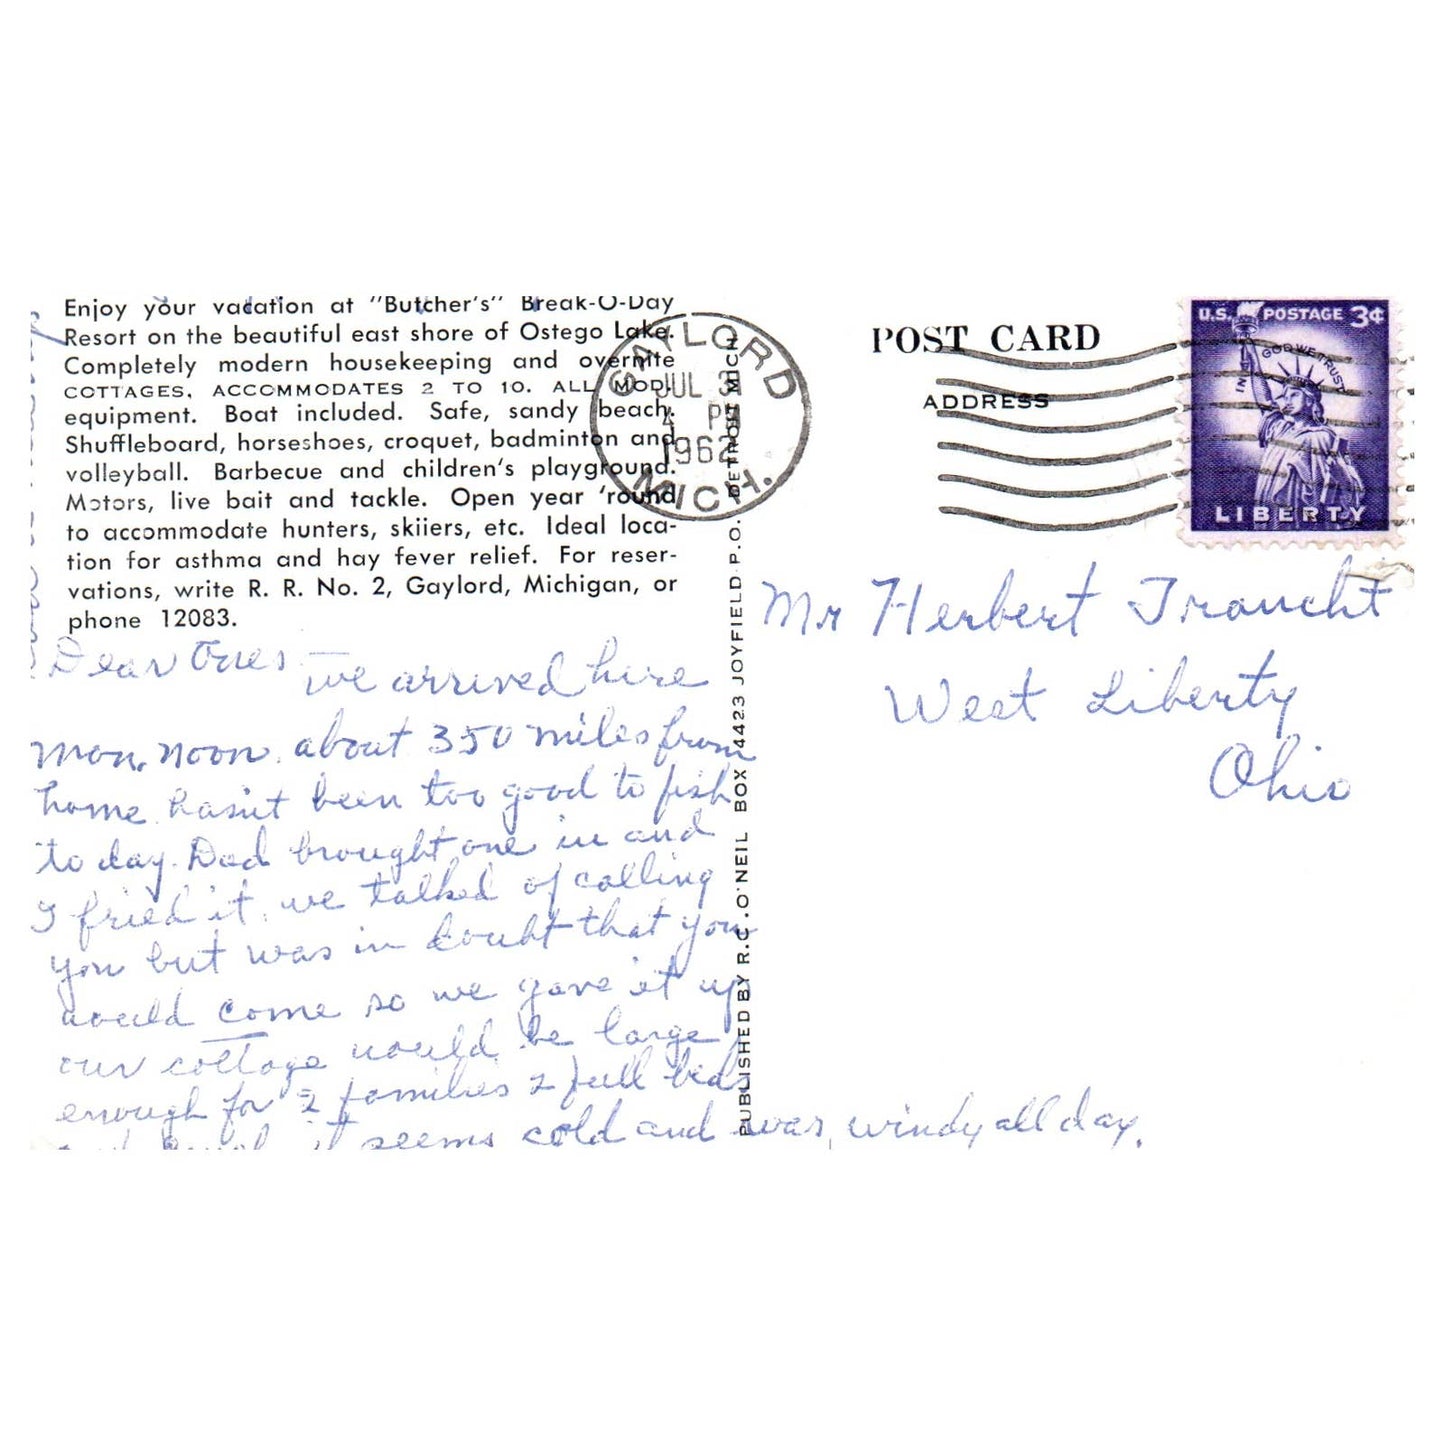 Enjoy your vacation at "Butcher's" Break-O-Day
Resort on the beautiful east shore of Ostego Lake.
Completely modern housekeeping and overnite
COTTAGES, ACCOMMODATES 2 TO 10. ALL MOD.
equipment. Boat included. Safe, sandy beach.
Shuffleboard, horseshoes, croquet, badminton and
volleyball. Barbecue and children's playground.
Motors, live bait and tackle. Open year 'round
to accommodate hunters, skiiers, etc. Ideal loca-
tion for asthma and hay fever relief. For reser-
vations, write R. R. No. 2, Gaylord, Michigan, or
phone 12083.
Dear Ones
We arrived here
Mon. noon. about 350 miles from
home hasn't been too good to fish
today. Dad brought one in and
I fried it. we talked of calling
you but was in doubt that you
would come so we gave it up
our cottage would be large
enough for 2 families 2 full beds
it seems cold and was windy all day.
PUBLISHED BY R.C. O'NEIL BOX 4423 JOYFIELD P.O. DETROIT MICH
GAYLORD
JUL 3
4 PM
1962
MICH.
POST CARD
ADDRESS
U.S. POSTAGE 3¢
IN GOD WE TRUST
LIBERTY
Mr Herbert Traucht
West Liberty
Ohio